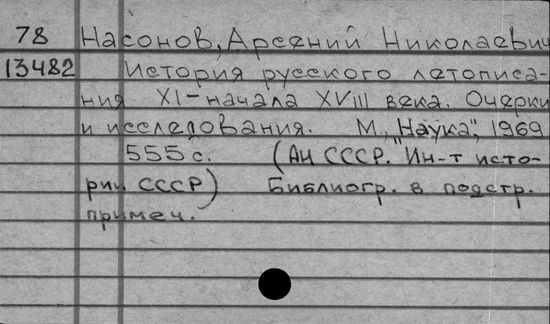 78 Насонов, Арсений Николаевич
13482 История русского летописа-
ния XI-начала XVIII века. Очерки
и исследования. М., "Наука", 1969
555 с. (АН СССР. Ин-т исто-
рии СССР) Библиогр. в подстр.
примеч.